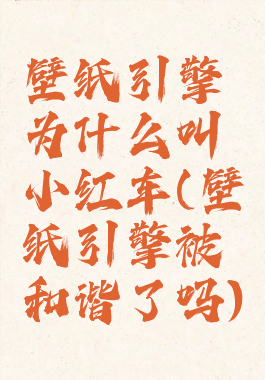 壁纸引擎
为什么叫
小红车(壁
纸引擎被
和谐了吗)